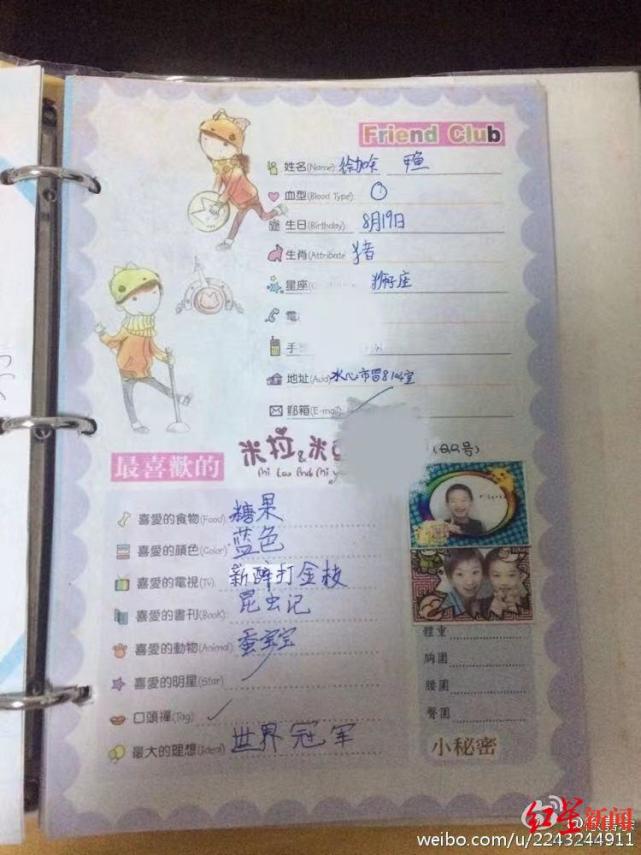 Friend Club
姓名(Name) 徐加余
血型(Blood Type) O
生日(Birthday) 8月19日
生肖(Attribute 猪
星座 狮子座
電
手
地址(Add) 水心市
郵箱(E-mail)
最喜歡的
米拉&米
(QQ号)
喜愛的食物(Food) 糖果
喜愛的顏色(Color) 蓝色
喜愛的電視(TV) 新醉打金枝
喜愛的書刊(Book) 昆虫记
喜愛的動物(Animal) 蚕宝宝
喜愛的明星(Star)
口頭禪(Tag)
最大的理想(Ideal) 世界冠军
體重
胸圍
腰圍
臀圍
小秘密
红星新闻
weibo.com/u/2243244911